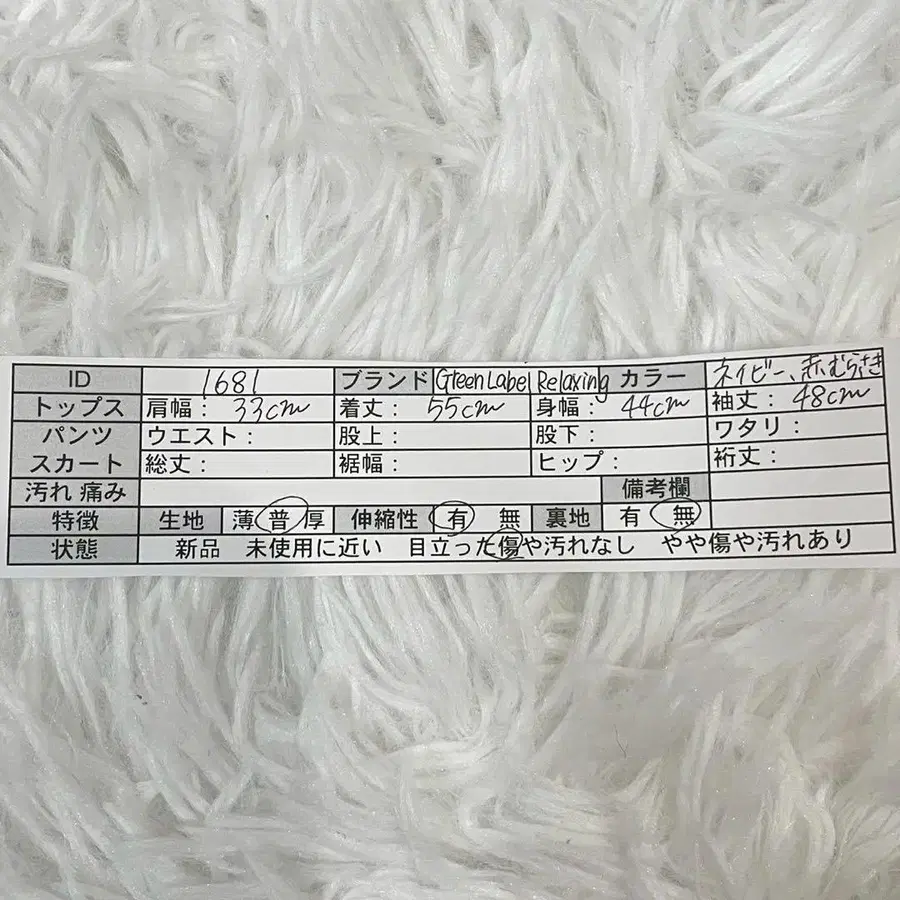 ID 1681 ブランド Green Label Relaxing カラー ネイビー、赤むらさき
トップス 肩幅: 33cm 着丈: 55cm 身幅: 44cm 袖丈: 48cm
パンツ ウエスト: 股上: 股下: ワタリ:
スカート 総丈: 裾幅: ヒップ: 裄丈:
汚れ 痛み 備考欄
特徴 生地 薄 普 厚 伸縮性 有 無 裏地 有 無
状態 新品 未使用に近い 目立った傷や汚れなし やや傷や汚れあり